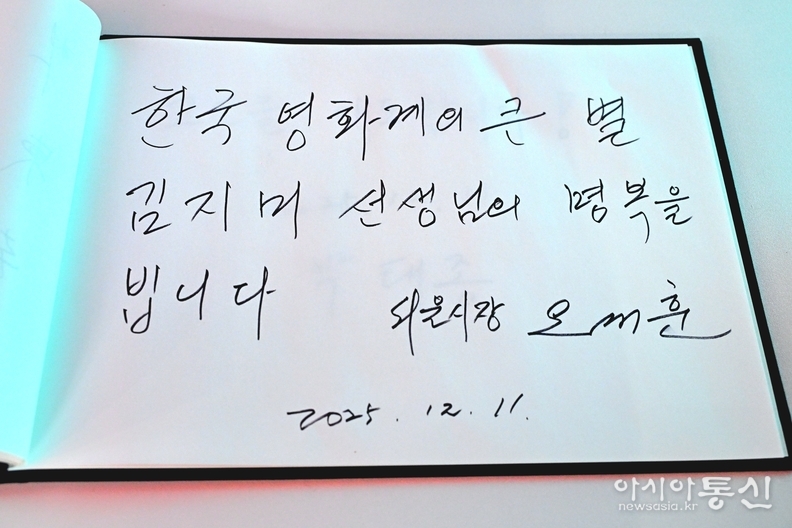 한국 영화계의 큰 별
김지미 선생님의 명복을
빕니다
서울시장 오세훈
2025. 12. 11.
아시아통신
newsasia.kr